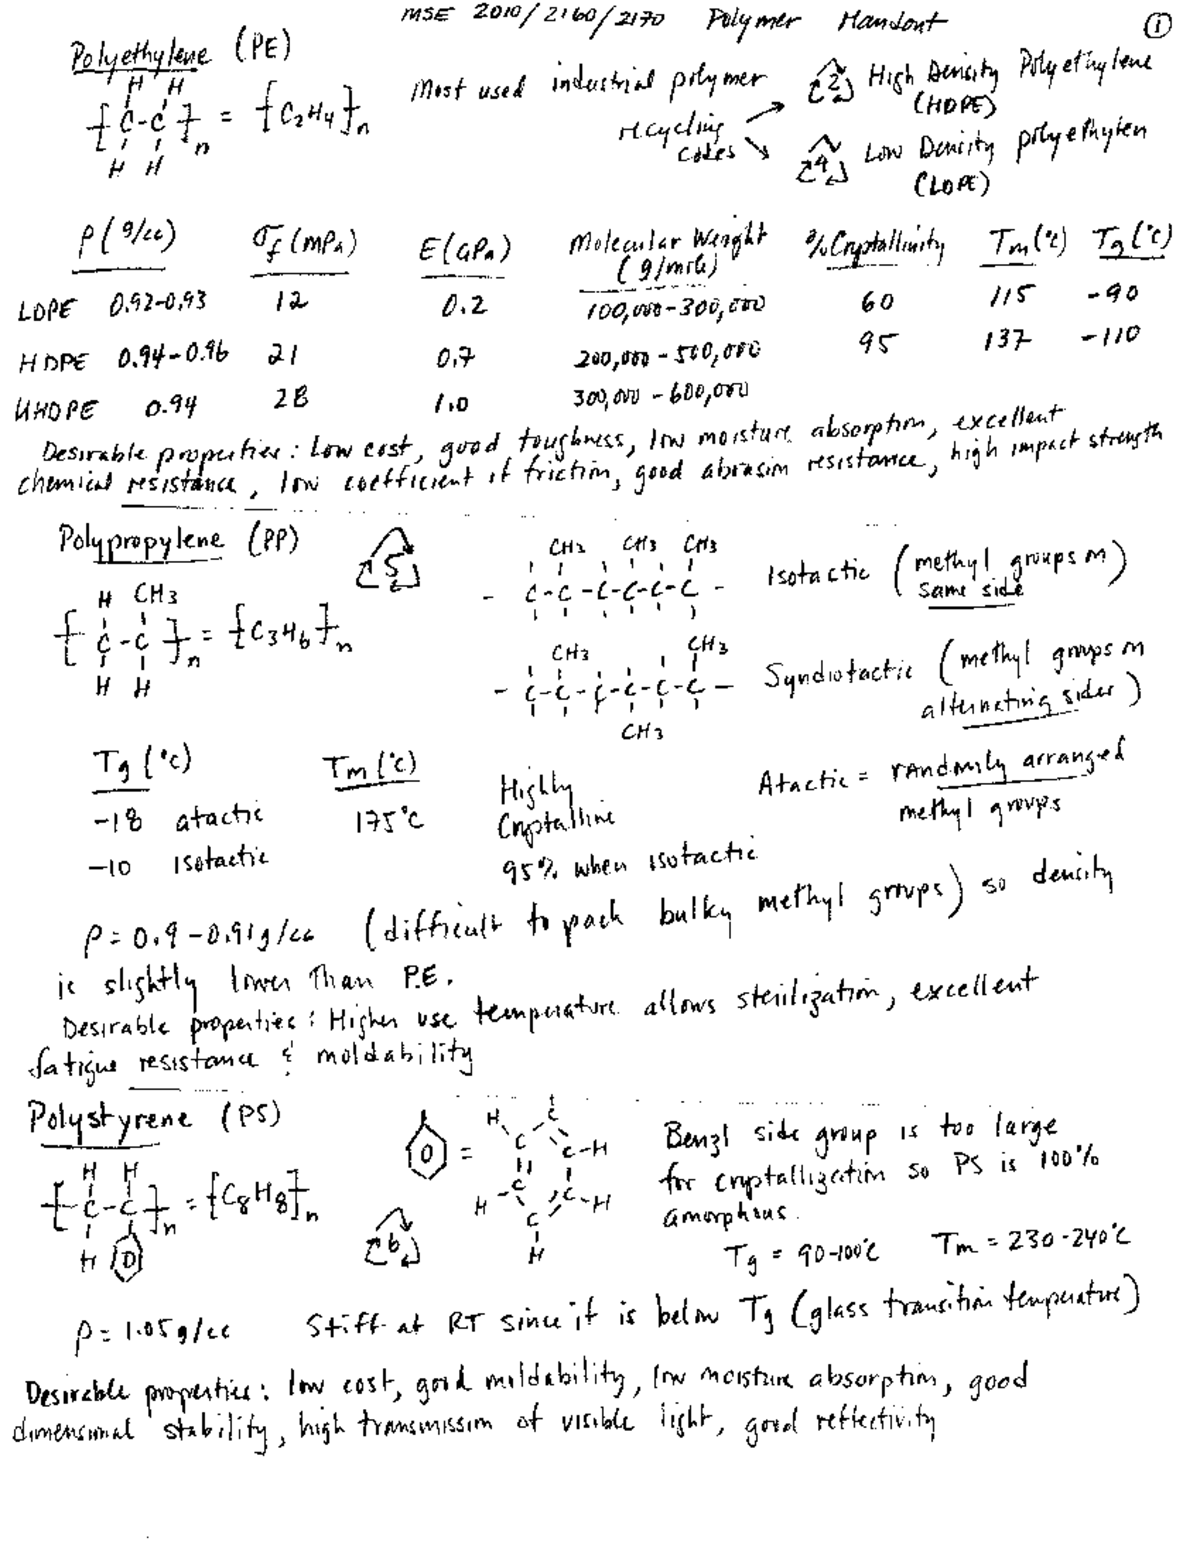 MSE 2010/2160/2170 Polymer Handout ①
Polyethylene (PE)
H H
{ C-C }n = {C2H4}n
H H
Most used industrial polymer
recycling codes
2 High Density Polyethylene (HDPE)
4 Low Density polyethylen (LDPE)
ρ (g/cc) σf (MPa) E (GPa) Molecular Weight (g/mole) % Crystallinity Tm (°C) Tg (°C)
LDPE 0.92-0.93 12 0.2 100,000-300,000 60 115 -90
HDPE 0.94-0.96 21 0.7 200,000-500,000 95 137 -110
UHDPE 0.94 28 1.0 300,000-600,000
Desirable properties: Low cost, good toughness, low moisture absorption, excellent
chemical resistance, low coefficient of friction, good abrasion resistance, high impact strength
Polypropylene (PP)
5
H CH3
{ C-C }n = {C3H6}n
H H
CH3 CH3 CH3
- C-C-C-C-C-C -
Isotactic (methyl groups on same side)
CH3 CH3
- C-C-C-C-C-C -
CH3
Syndiotactic (methyl groups on alternating sides)
Atactic = randomly arranged methyl groups
Tg (°C) Tm (°C)
-18 atactic 175°C
-10 isotactic
Highly Crystalline
95% when isotactic
ρ = 0.9-0.91g/cc (difficult to pack bulky methyl groups) so density
is slightly lower than P.E.
Desirable properties: Higher use temperature allows sterilization, excellent
fatigue resistance & moldability
Polystyrene (PS)
H H
{ C-C }n = {C8H8}n
H
6
=
H C C-H
C
H-C C-H
C
H
Benzl side group is too large
for crystallization so PS is 100%
amorphous.
Tg = 90-100°C Tm = 230-240°C
ρ = 1.05g/cc Stiff at RT since it is below Tg (glass transition temperature)
Desirable properties: low cost, good moldability, low moisture absorption, good
dimensional stability, high transmission of visible light, good reflectivity